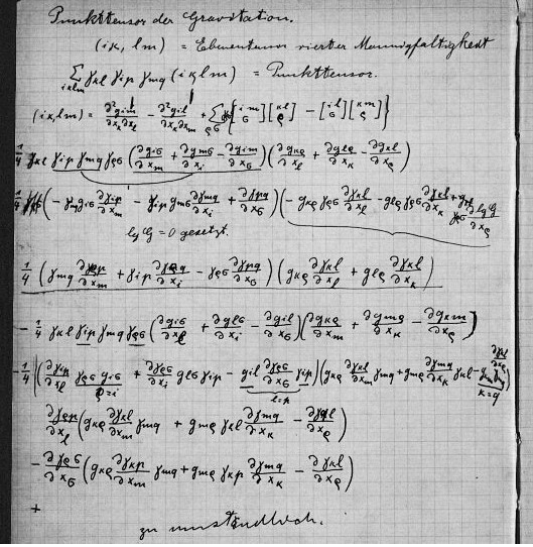 Punkttensor der Gravitation.
(iκ, lm) = Ebenentensor vierter Mannigfaltigkeit
∑_{iκlm} γκl γip γmq (iκ, lm) = Punkttensor.
(iκ, lm) = ∂²gim/∂xκ∂xl − ∂²gil/∂xκ∂xm + ∑_{ρσ} γρσ {[i m / σ][κ l / ρ] − [i l / σ][κ m / ρ]}
1/4 γκl γip γmq γρσ (∂giσ/∂xm + ∂gmσ/∂xi − ∂gim/∂xσ)(∂gκρ/∂xl + ∂glρ/∂xκ − ∂gκl/∂xρ)
1/4 (− γmq giσ ∂γip/∂xm − γip gmσ ∂γmq/∂xi + ∂γpq/∂xσ)(− gκρ γρσ ∂γκl/∂xl − glρ γρσ ∂γκl/∂xκ + γρσ ∂lgG/∂xρ
lg G = 0 gesetzt.
1/4 (γmq ∂γρp/∂xm + γip ∂γρq/∂xi − γρσ ∂γpq/∂xσ)(gκρ ∂γκl/∂xl + glρ ∂γκl/∂xκ)
− 1/4 γκl γip γmq γρσ (∂giσ/∂xl + ∂glσ/∂xi − ∂gil/∂xσ)(∂gκρ/∂xm + ∂gmρ/∂xκ − ∂gκm/∂xρ)
− 1/4 ((∂γip/∂xl γρσ giσ + ∂γρσ/∂xi glσ γip − gil ∂γρσ/∂xσ γip)(gκρ ∂γκl/∂xm γmq + gmρ ∂γmq/∂xκ γκl − gκm γmq ∂γκl/∂xρ)
ρ=i
κ=q
∂γρp/∂xl (gκρ ∂γκl/∂xm γmq + gmρ γκl ∂γmq/∂xκ − ∂γql/∂xρ)
− ∂γρσ/∂xσ (gκρ ∂γκp/∂xm γmq + gmρ γκp ∂γmq/∂xκ − ∂γκl/∂xρ)
+
zu umständlich.